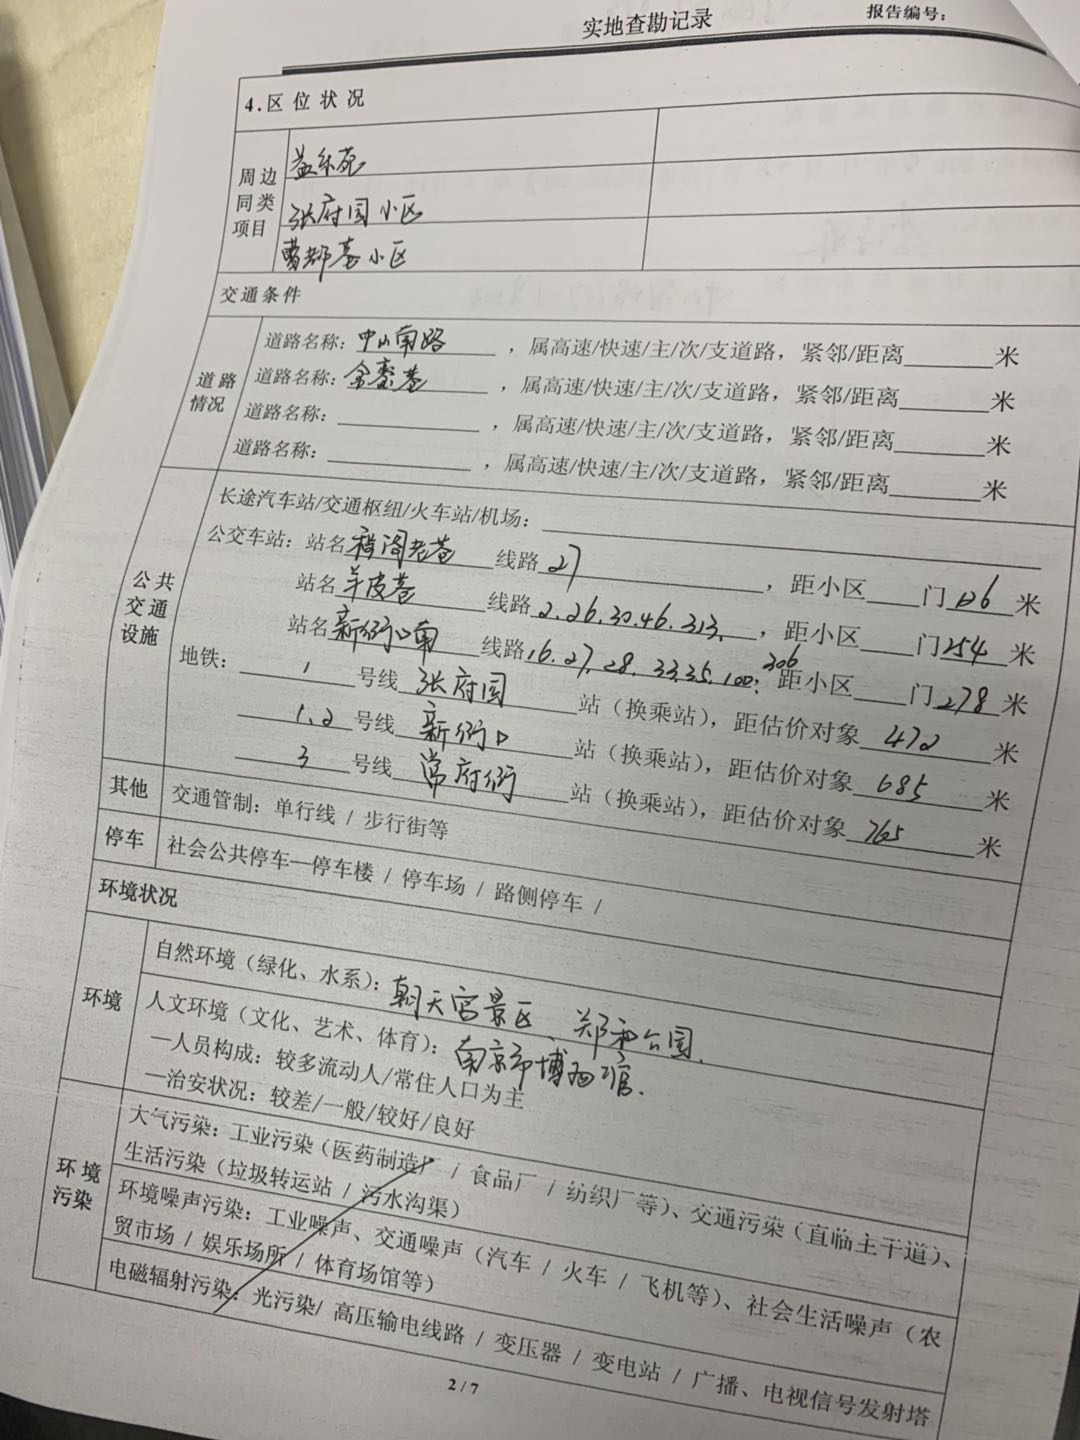 实地查勘记录
报告编号：
4.区位状况
周边同类项目
益乐苑
张府园小区
曹都巷小区
交通条件
道路情况
道路名称：中山南路，属高速/快速/主/次/支道路，紧邻/距离______米
道路名称：金銮巷，属高速/快速/主/次/支道路，紧邻/距离______米
道路名称：______，属高速/快速/主/次/支道路，紧邻/距离______米
道路名称：______，属高速/快速/主/次/支道路，紧邻/距离______米
公共交通设施
长途汽车站/交通枢纽/火车站/机场：______
公交车站：站名 线路27，距小区____门126米
站名羊皮巷 线路2.26.30.46.313.，距小区____门254米
站名新街口南 线路16.27.28.33.35.100.306，距小区____门278米
地铁：1号线张府园站（换乘站），距估价对象472米
1.2号线新街口站（换乘站），距估价对象685米
3号线常府街站（换乘站），距估价对象765米
其他
交通管制：单行线 / 步行街等
停车
社会公共停车—停车楼 / 停车场 / 路侧停车 /
环境状况
环境
自然环境（绿化、水系）：朝天宫景区、郑和公园.
人文环境（文化、艺术、体育）：南京市博物馆.
—人员构成：较多流动人/常住人口为主
—治安状况：较差/一般/较好/良好
环境污染
大气污染：工业污染（医药制造厂 / 食品厂 / 纺织厂等）、交通污染（直临主干道）、
生活污染（垃圾转运站 / 污水沟渠）
环境噪声污染：工业噪声、交通噪声（汽车 / 火车 / 飞机等）、社会生活噪声（农
贸市场 / 娱乐场所 / 体育场馆等）
电磁辐射污染：光污染/ 高压输电线路 / 变压器 / 变电站 / 广播、电视信号发射塔
2 / 7